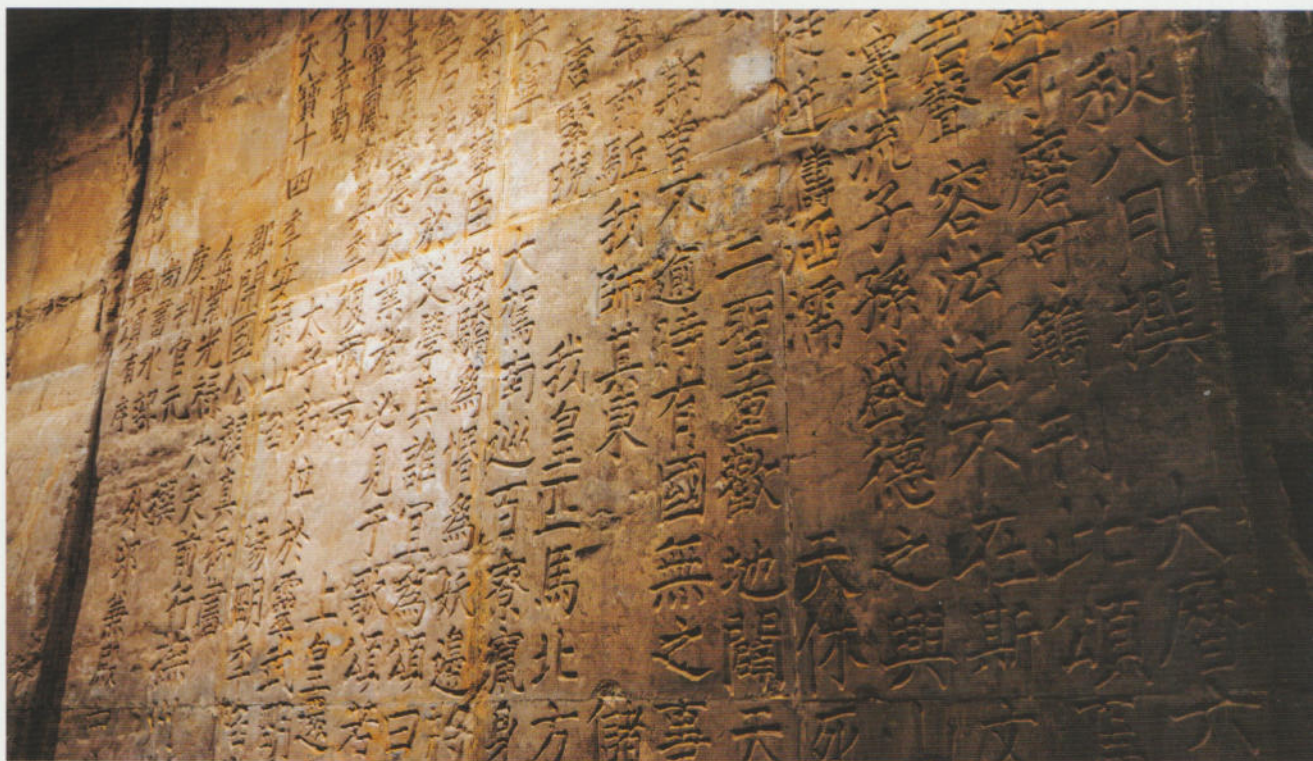 唐中興頌有序
尚書水部員外郎兼殿
度判官元結撰
金紫光祿大夫前行撫州
郡開國公顏真卿書
天寶十四年安祿山陷洛陽明年陷
子幸蜀太子即位於靈武明
軍鳳翔其年復兩京上皇還
盛德大業者必見于歌頌若
金石非老於文學其誰宜為頌曰
前朝孽臣姦驕為惛為妖邊將
失寧大駕南巡百寮竄身
繄睨我皇匹馬北方
卒前驅我師其東儲
期曾不逾時有國無之事
二聖重歡地闢天
徒逆儔涵濡天休死
澤流子孫盛德之興山
君聲容沄沄不在斯文
可磨可鐫刊此頌焉
秋八月撰大曆六